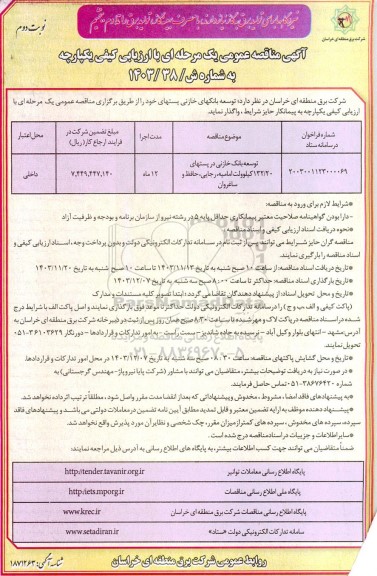 نوبت دوم
شرکت برق منطقه ای خراسان
آگهی مناقصه عمومی یک مرحله ای با ارزیابی کیفی یکپارچه
به شماره ش/ ۳۸ /۱۴۰۳
شرکت برق منطقه ای خراسان در نظر دارد؛ توسعه بانکهای خازنی پستهای خود را از طریق برگزاری مناقصه عمومی یک مرحله ای با
ارزیابی کیفی یکپارچه به پیمانکار حایز شرایط، واگذار نماید.
شماره فراخوان در سامانه ستاد
موضوع مناقصه
مدت اجرا
مبلغ تضمین شرکت در فرایند ارجاع کار (ریال)
محل اعتبار
۲۰۰۳۰۰۱۱۲۳۰۰۰۰۶۹
توسعه بانک خازنی در پستهای ۱۳۲/۲۰ کیلوولت امامیه، رجایی، حافظ و شاغروان
۱۲ ماه
۷,۴۴۹,۴۴۷,۱۴۰
داخلی
شرایط لازم برای ورود به مناقصه:
-دارا بودن گواهینامه صلاحیت معتبر پیمانکاری حداقل پایه ۵ در رشته نیرو از سازمان برنامه و بودجه و ظرفیت آزاد
-نحوه دریافت اسناد ارزیابی کیفی و اسناد مناقصه:
مناقصه گران حایز شرایط می توانند؛ پس از ثبت نام در سامانه تدارکات الکترونیکی دولت و بدون پرداخت وجه، اسناد ارزیابی کیفی و
اسناد مناقصه را بارگیری نمایند.
-تاریخ دریافت اسناد مناقصه: از ساعت ۱۰ صبح شنبه به تاریخ ۱۴۰۳/۱۱/۱۳ تا ساعت ۱۰ صبح شنبه به تاریخ ۱۴۰۳/۱۱/۲۰
-تاریخ بارگذاری اسناد مناقصه: حداکثر تا ساعت ۸:۰۰ صبح سه شنبه به تاریخ ۱۴۰۳/۱۲/۰۷
-تاریخ و محل تحویل اسناد: از پیشنهاد دهندگان تقاضا می گردد؛ ابتدا تصویر کلیه مستندات و مدارک
(پاکت کیفی و الف، ب و ج) را در سامانه تدارکات الکترونیکی دولت حداکثر تا موعد فوق بارگذاری نمایند و اصل پاکت الف با شرایط درج
شده در اسناد مناقصه در پاکت لاک و مهر شده تا ساعت ۸:۳۰ صبح همان روز پس از ثبت در دبیرخانه شرکت برق منطقه ای خراسان به
آدرس: مشهد - انتهای بلوار وکیل آباد - نرسیده به جاده شاندیز - سمت راست - به امور تدارکات و قراردادها - دورنگار ۳۶۱۰۳۶۲۹-۰۵۱
تحویل نمایند.
-تاریخ و محل گشایش پاکتهای مناقصه: ساعت ۰۸:۳۰ صبح سه شنبه به تاریخ ۱۴۰۳/۱۲/۰۷ در محل امور تدارکات و قراردادها.
-در صورت نیاز به دریافت توضیحات بیشتر، متقاضیان می توانند با مشاور (شرکت پایا نیروپاژ- مهندس گرجستانی) به
شماره ۳۸۶۷۶۴۲۰-۰۵۱ تماس حاصل فرمایند.
-به پیشنهادهای فاقد امضا، مشروط، مخدوش و پیشنهاداتی که بعد از انقضا مدت مقرر واصل شود، مطلقاً ترتیب اثر داده نخواهد شد.
-پیشنهاد دهنده موظف به ارایه تضمین معتبر و قابل تمدید مطابق آیین نامه تضمین در معاملات دولتی می باشد و پیشنهادهای فاقد
سپرده، سپرده های مخدوش، سپرده های کمتر از میزان مقرر، چک شخصی و نظایر آن مورد پذیرش واقع نخواهد شد.
-سایر اطلاعات و جزییات در اسناد مناقصه درج شده است.
ضمناً متقاضیان می توانند جهت کسب اطلاعات بیشتر، به پایگاه های اطلاع رسانی به آدرس ذیل مراجعه نمایند:
پایگاه اطلاع رسانی معاملات توانیر
http://tender.tavanir.org.ir
پایگاه ملی اطلاع رسانی مناقصات
http:iets.mporg.ir
پایگاه اطلاع رسانی مناقصات شرکت برق منطقه ای خراسان
www.krec.ir
سامانه تدارکات الکترونیکی دولت «ستاد»
www.setadiran.ir
روابط عمومی شرکت برق منطقه ای خراسان
شناسه آگهی: ۱۸۷۱۲۶۳